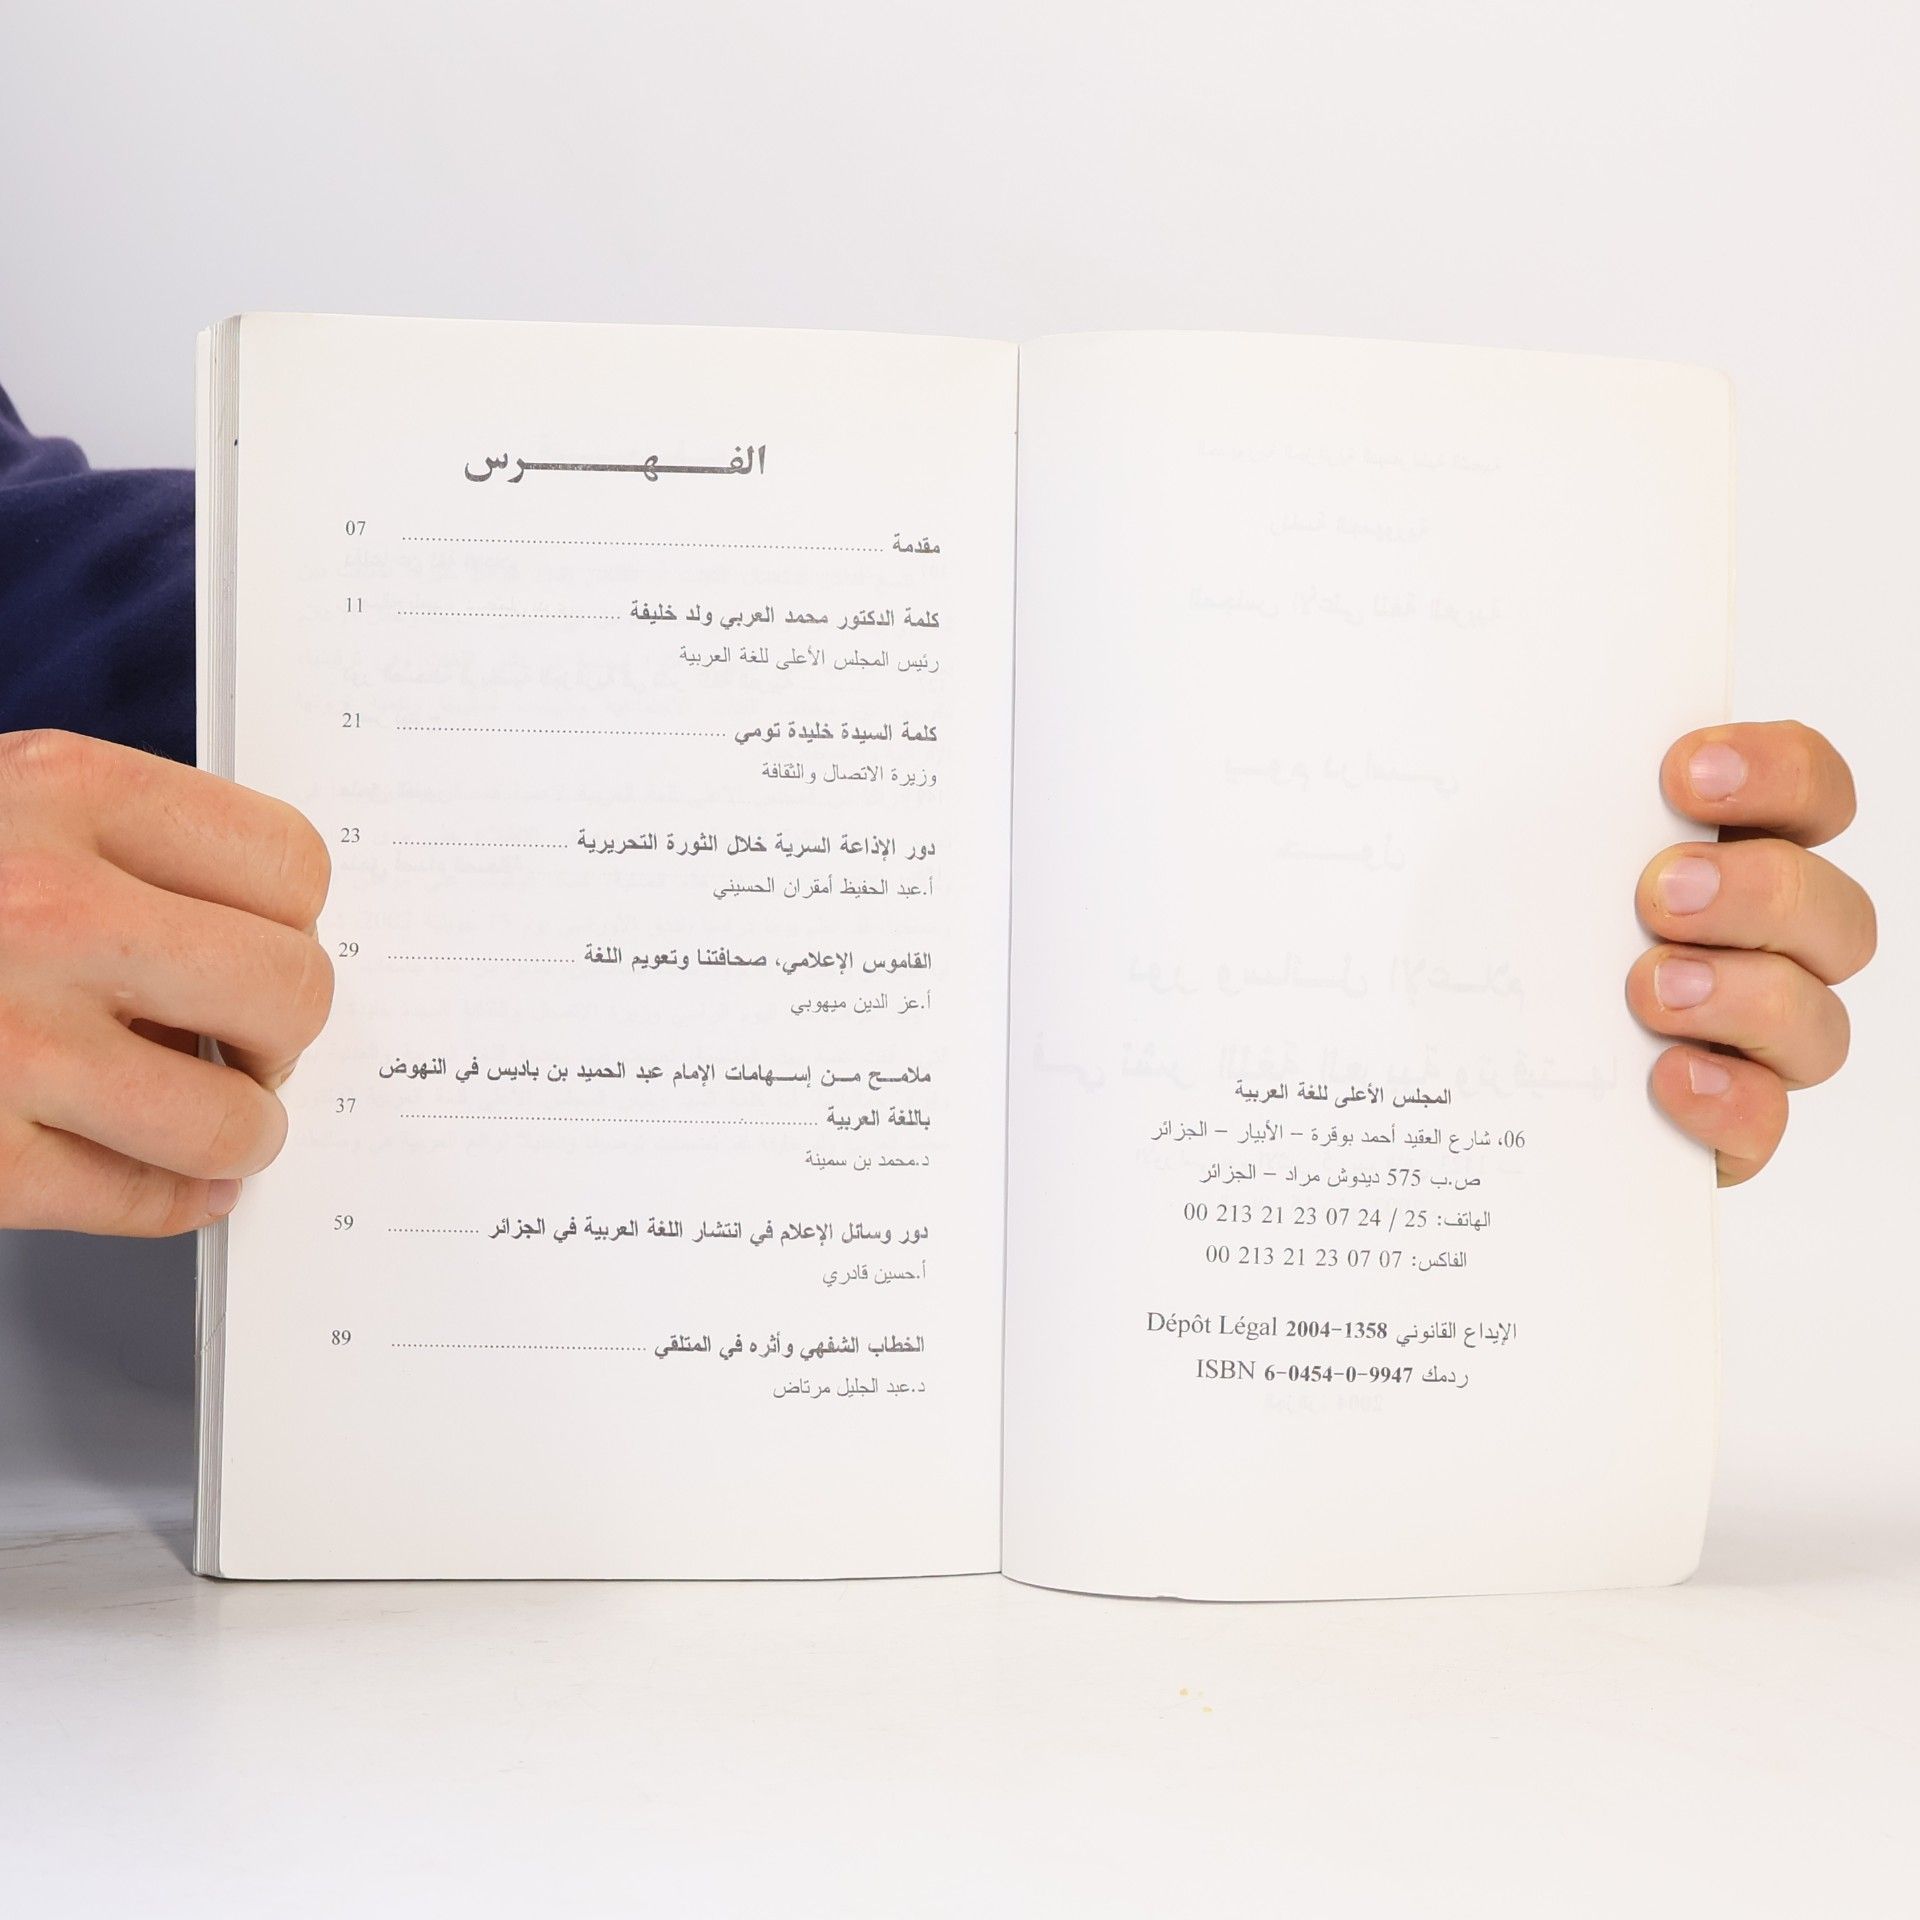 المجلس الأعلى للغة العربية
06، شارع العقيد أحمد بوقرة – الأبيار – الجزائر
ص.ب 575 ديدوش مراد – الجزائر
الهاتف: 25 / 24 07 23 21 213 00
الفاكس: 07 07 23 21 213 00
الإيداع القانوني 1358-2004 Dépôt Légal
ردمك 9947-0-0454-6 ISBN
الفهرس
مقدمة ........ 07
كلمة الدكتور محمد العربي ولد خليفة ........ 11
رئيس المجلس الأعلى للغة العربية
كلمة السيدة خليدة تومي ........ 21
وزيرة الاتصال والثقافة
دور الإذاعة السرية خلال الثورة التحريرية ........ 23
أ.عبد الحفيظ أمقران الحسيني
القاموس الإعلامي، صحافتنا وتعويم اللغة ........ 29
أ.عز الدين ميهوبي
ملامح من إسهامات الإمام عبد الحميد بن باديس في النهوض
باللغة العربية ........ 37
د.محمد بن سمينة
دور وسائل الإعلام في انتشار اللغة العربية في الجزائر ........ 59
أ.حسين قادري
الخطاب الشفهي وأثره في المتلقي ........ 89
د.عبد الجليل مرتاض